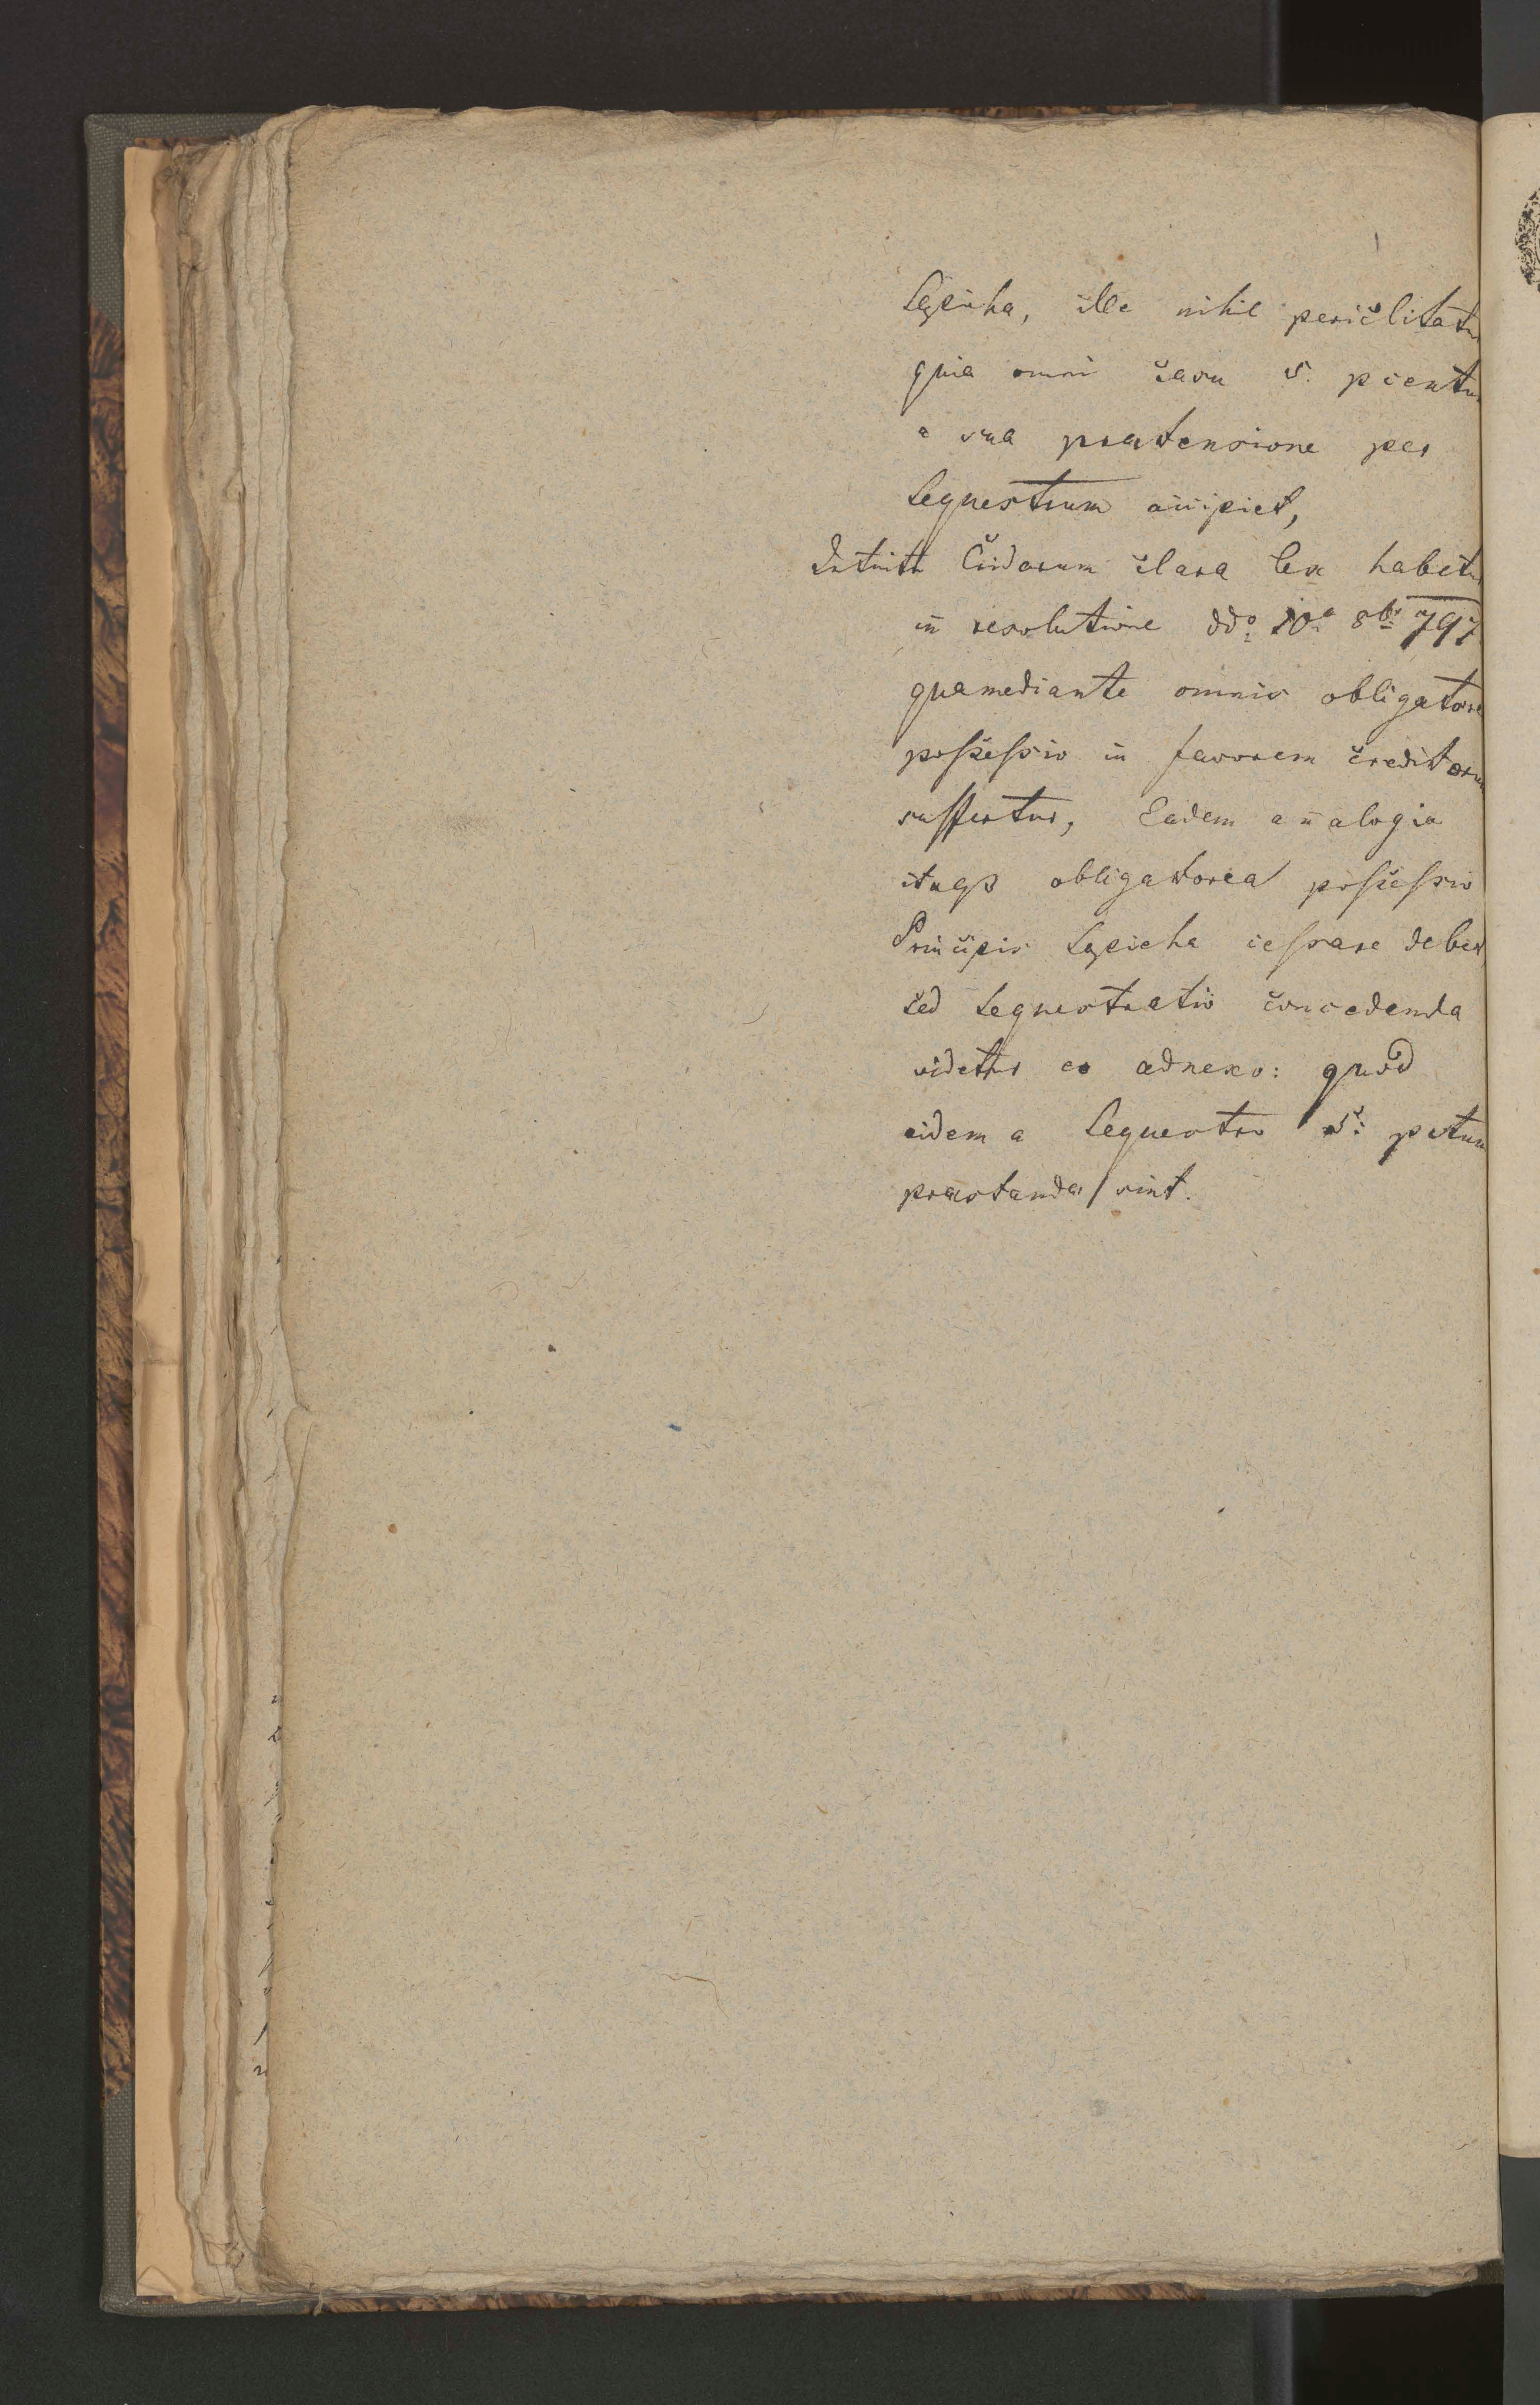 Sapieha, ille nihil periclitatur
quia omni casu 5. pcentum
a sua praetensione per
Sequestrum accipiet,
Intuitu Cridarum clara lex habetur
in resolutione ddo 10a 8bris 797
qua mediante omnis obligatorea
possessio in favorem creditorum
suffertur, Eadem analogia
itaqs obligatorea possessio
Principis Sapieha cessare debet,
sed Sequestratio concedenda
videtur eo adnexo: quod
eidem a Sequestro 5. pctum
praestanda sint.